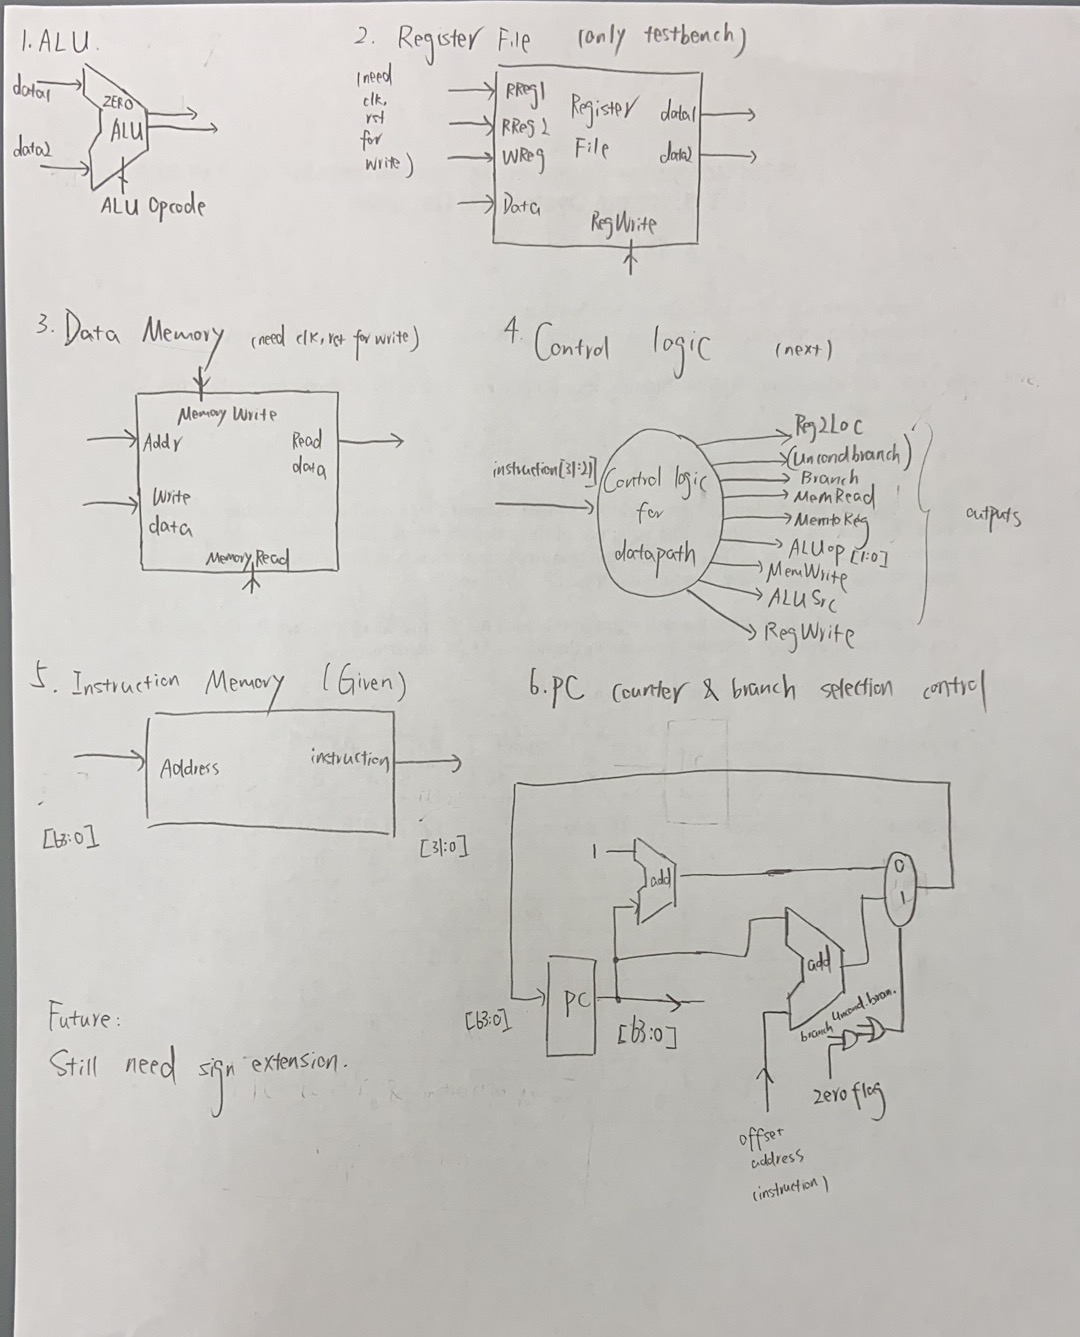 1. ALU.
data1
data2
ZERO
ALU
ALU Opcode
2. Register File (only testbench)
(need
clk,
rst
for
write)
RReg1
RReg2
WReg
Data
Register
File
data1
data2
RegWrite
3. Data Memory (need clk, rst for write)
Memory Write
Addr
Read
data
Write
data
Memory Read
4. Control logic (next)
instruction[31:21]
Control logic
for
datapath
Reg2Loc
(Uncondbranch)
Branch
MemRead
MemtoReg
ALUop [1:0]
MemWrite
ALUSrc
RegWrite
outputs
5. Instruction Memory (Given)
Address
instruction
[63:0]
[31:0]
6. PC counter & branch selection control
1
add
0
1
add
PC
[63:0]
[63:0]
branch
Uncond.bran.
zero flag
offset
address
(instruction)
Future:
Still need sign extension.